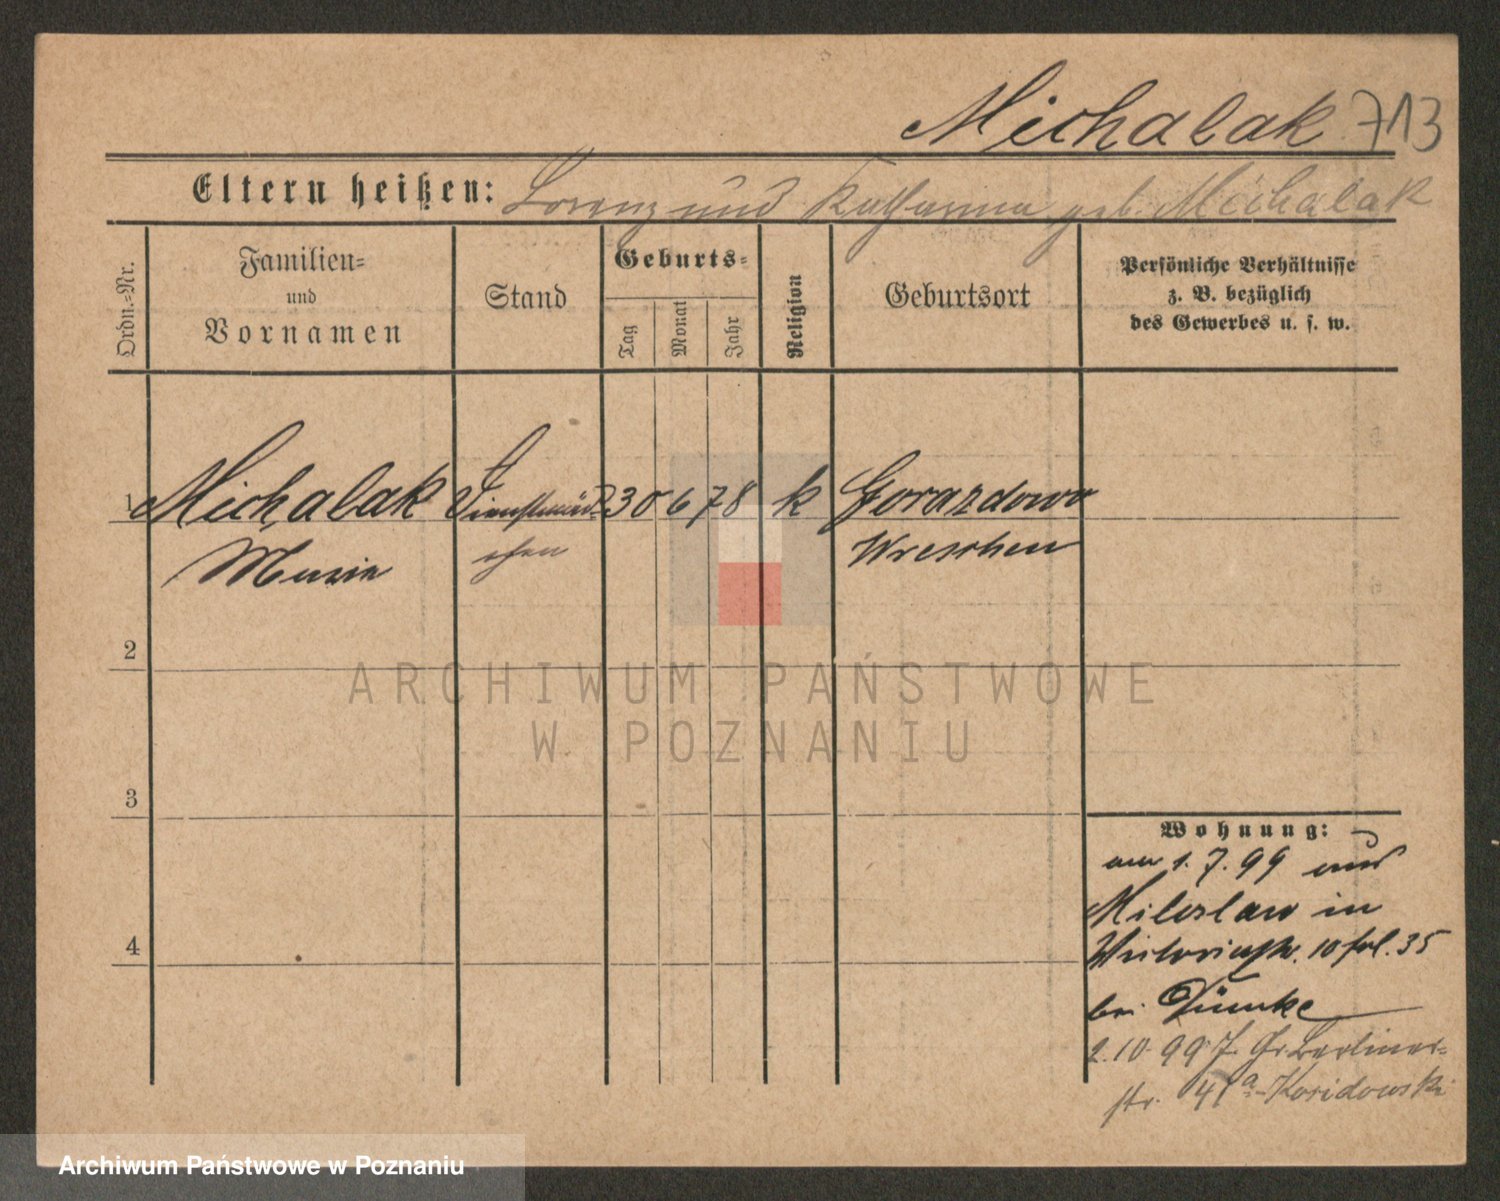 Michalak 713
Eltern heißen: Lorenz und Katharina geb. Michalak
Ordn.=Nr.
Familien=
und
Vornamen
Stand
Geburts=
Tag
Monat
Jahr
Religion
Geburtsort
Persönliche Verhältnisse
z. B. bezüglich
des Gewerbes u. s. w.
1 Michalak Dienstmäd= 30 6 78 k Gorazdowo
Maria chen Wreschen
2
ARCHIWUM PAŃSTWOWE
W POZNANIU
3
Wohnung:
am 1. 7. 99 aus
Miloslaw in
Victoriastr. 10 fol. 35
bei Dümke
2. 10 99 J. Gr. Berliner=
str. 41a Koridowski
4
Archiwum Państwowe w Poznaniu